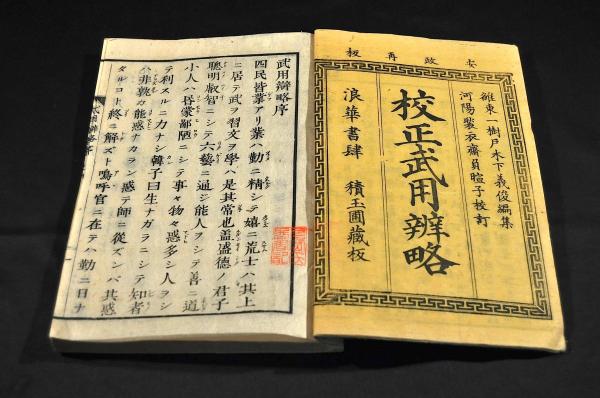 安政再板
雒東一樹戸木下義俊編集
河陽 衣齋員暄子校訂
校正武用辨略
浪華書肆 積玉圃藏板
武用辯略序
四民皆業アリ業ハ勤ニ精シテ嬉ニ荒士ハ其上
ニ居テ武ヲ習文ヲ學ハ是其常也盖盛徳ノ君子
聰明叡智ニシテ六藝ニ通ジ能人ヲシテ善ニ道
小人ハ昏蒙鄙陋ニシテ事々物々惑多シ人ヲシ
テ利スルニ力ナシ韓子曰生ナガラニシテ知者
ハ非孰カ能惑ナカラン惑テ師ニ從ズンバ其惑
タルコト終ニ解ズト嗚呼官ニ在テム勤ニ日ナ